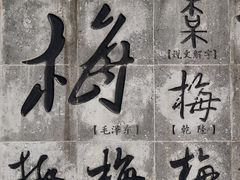 梅
【毛泽东】
【说文解字】
梅
【乾隆】
梅
梅
梅